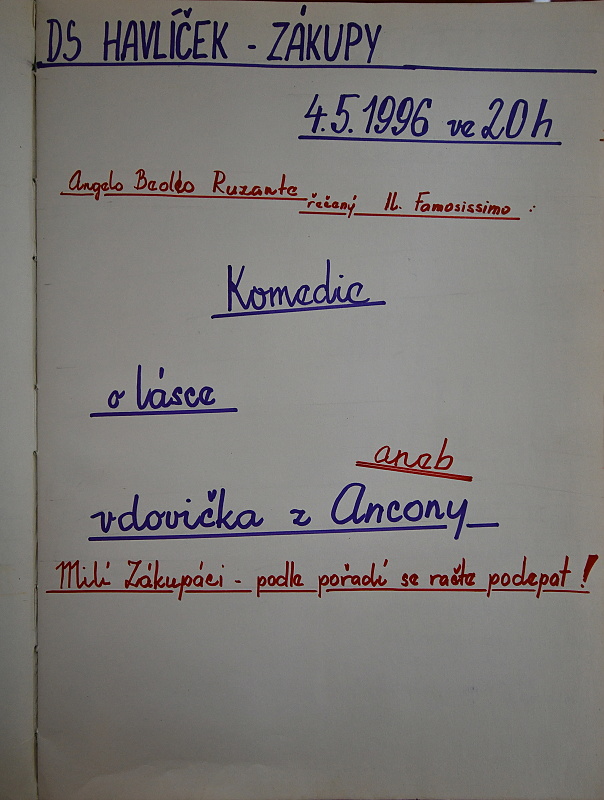 DS HAVLÍČEK - ZÁKUPY
4.5.1996 ve 20 h
Angelo Beolco Ruzante
řečený Il. Famosissimo :
Komedie
o lásce
aneb
vdovička z Ancony
Milí Zákupáci - podle pořadí se račte podepat !